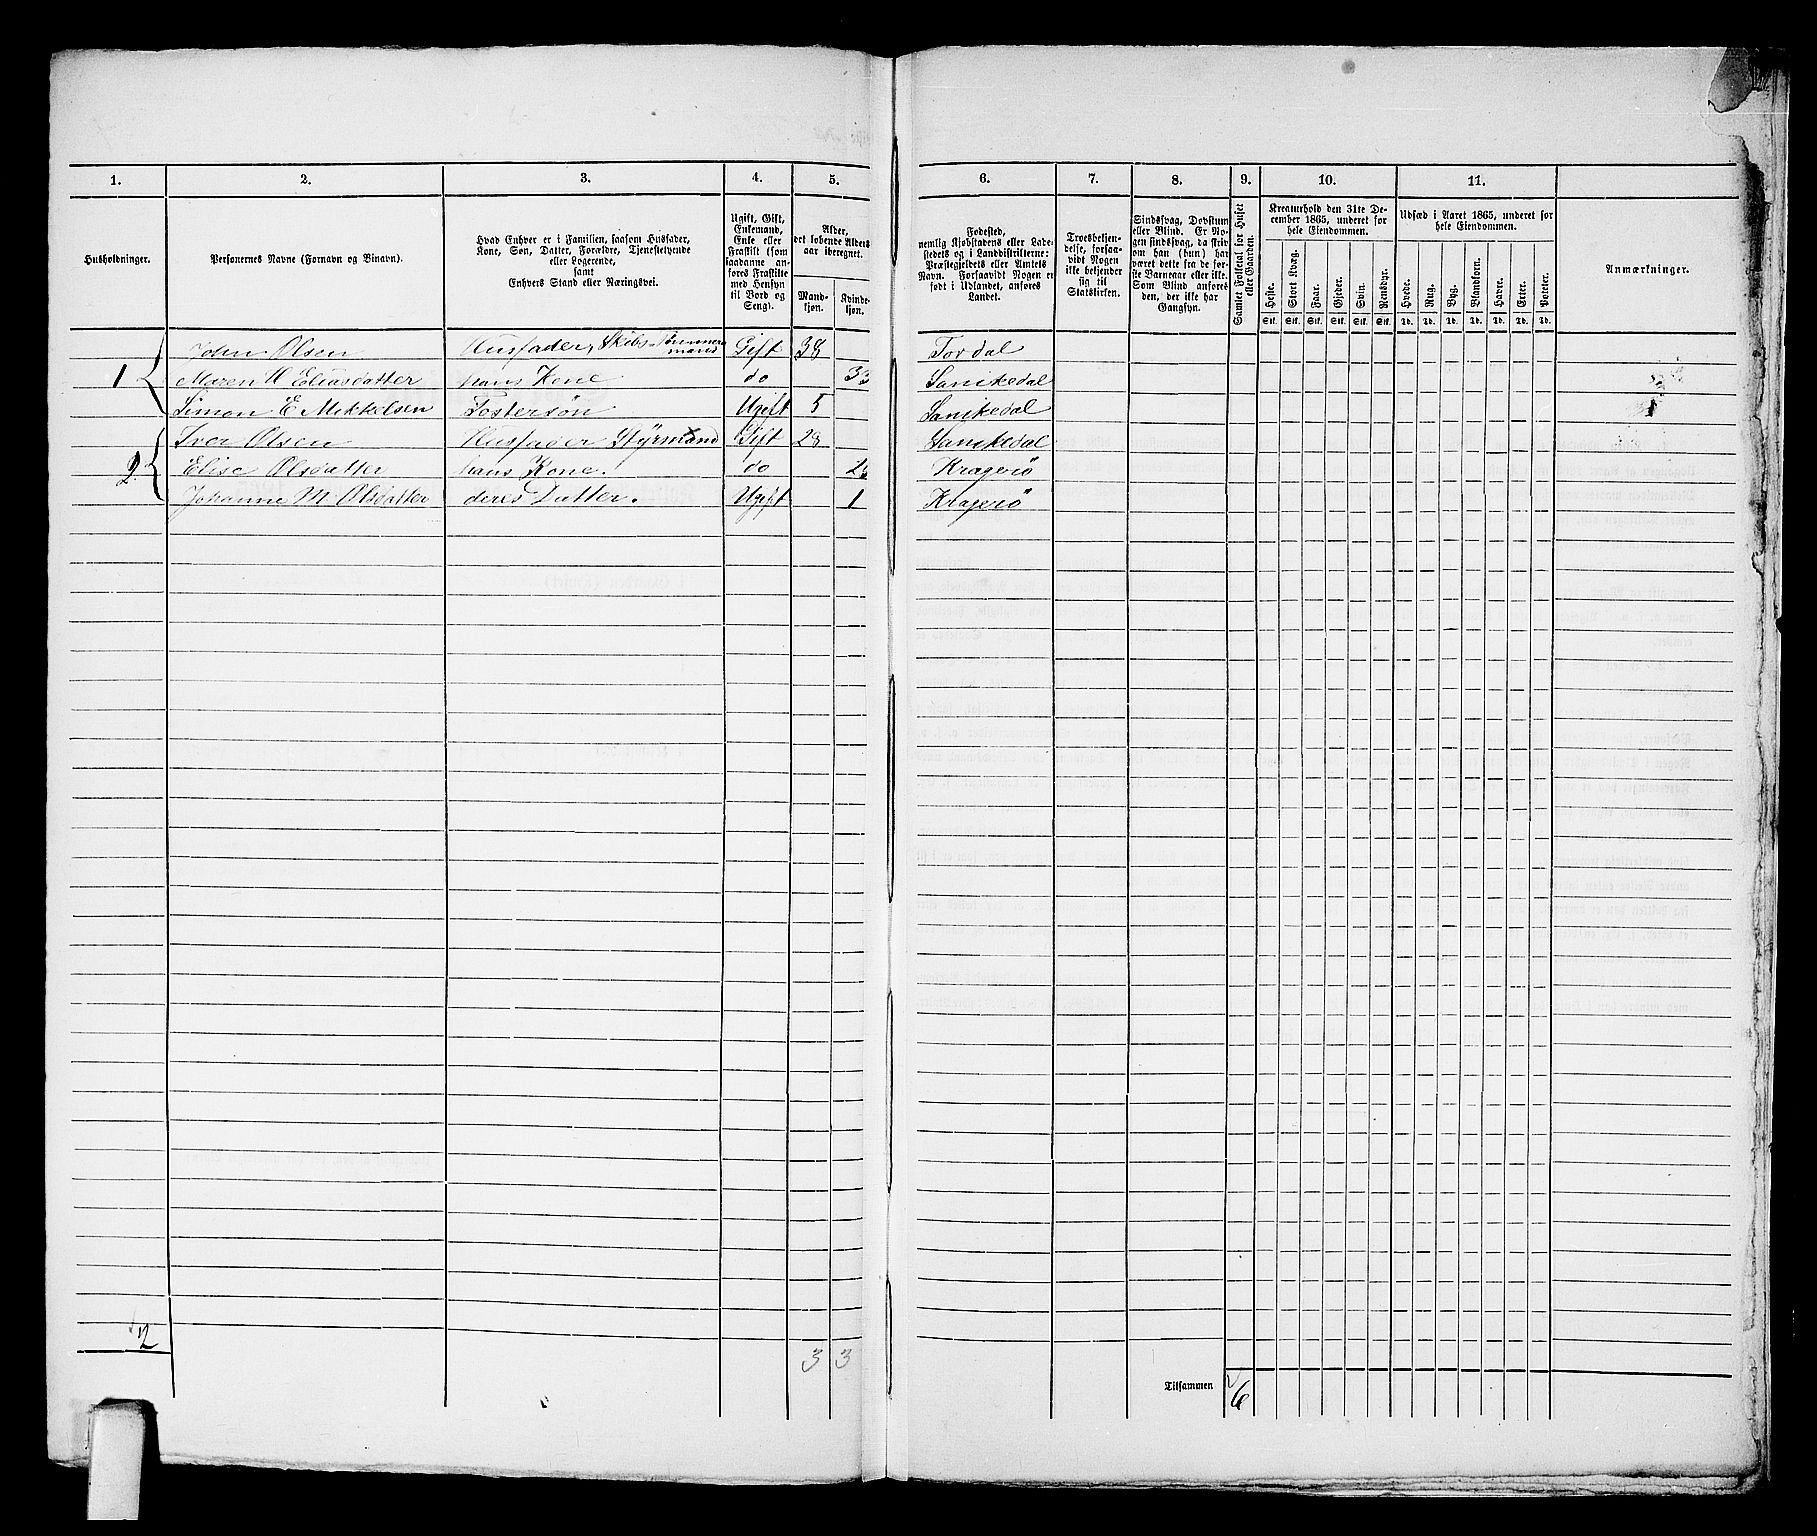 1. 2. 3. 4. 5. 6. 7. 8. 9. 10. 11.
Husholdninger.
Personernes Navne (Fornavn og Binavn).
Hvad Enhver er i Familien, saasom Husfader,
Kone, Søn, Datter, Forældre, Tjenestetyende
eller Logerende,
samt
Enhvers Stand eller Næringsvei.
Ugift, Gift,
Enkemand,
Enke eller
Fraskilt (som
saadanne an-
føres Fraskilte
med Hensyn
til Bord og
Seng).
Alder,
det løbende Alders-
aar iberegnet.
Mand-
kjøn.
Kvinde-
kjøn.
Fødested,
nemlig Kjøbstadens eller Lade-
stedets og i Landdistrikterne:
Præstegjeldets eller Amtets
Navn. Forsaavidt Nogen er
født i Udlandet, anføres
Landet.
Troesbekjen-
delse, forsaa-
vidt Nogen
ikke bekjender
sig til
Statskirken.
Sindssvag, Døvstum
eller Blind. Er No-
gen sindssvag, da skriv
om han (hun) har
været dette fra de før-
ste Barneaar eller ikke.
Som Blind anføres
den, der ikke har
Gangsyn.
Samlet Folketal for Huset
eller Gaarden.
Kreaturhold den 31te De-
cember 1865, underet for
hele Eiendommen.
Heste. Stort Kvæg. Faar. Gjeder. Svin. Rensdyr.
Stk. Stk. Stk. Stk. Stk. Stk.
Udsæd i Aaret 1865, underet for
hele Eiendommen.
Hvede. Rug. Byg. Blandkorn. Havre. Erter. Poteter.
Td. Td. Td. Td. Td. Td. Td.
Anmærkninger.
John Olsen Husfader, Skibs-Tømmermand Gift 38 Tordal
1 Maren H Eliasdatter hans Kone do 33 Sanikedal
Simon E Mikkelsen Fostersøn Ugift 5 Sanikedal
Iver Olsen Husfader Styrmand Gift 28 Sanikedal
2 Elise Olsdatter hans Kone. do Kragerö
Johanne M. Olsdatter deres Datter. Ugift 1 Kragerö
2 3 3
Tilsammen 6